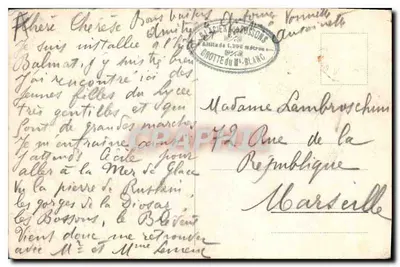 Chère Thérèse
Bons baisers
Antoinette
Je suis installée à l'hôtel
Balmat, j'y suis très bien
J'ai rencontré ici des
jeunes filles du Lycée
très gentilles et qui
font de grandes marches
Je m'entraîne aussi
J'attends pour
aller à la Mer de Glace
Vu la pierre de Ruskin
les gorges de la Diosaz
les Bossons, le Brévent
Viens donc me retrouver
avec Mr et Mme
GLACIER DES BOSSONS
GROTTE du Mt-BLANC
Madame Lambroschini
72 Rue de la
République
Marseille